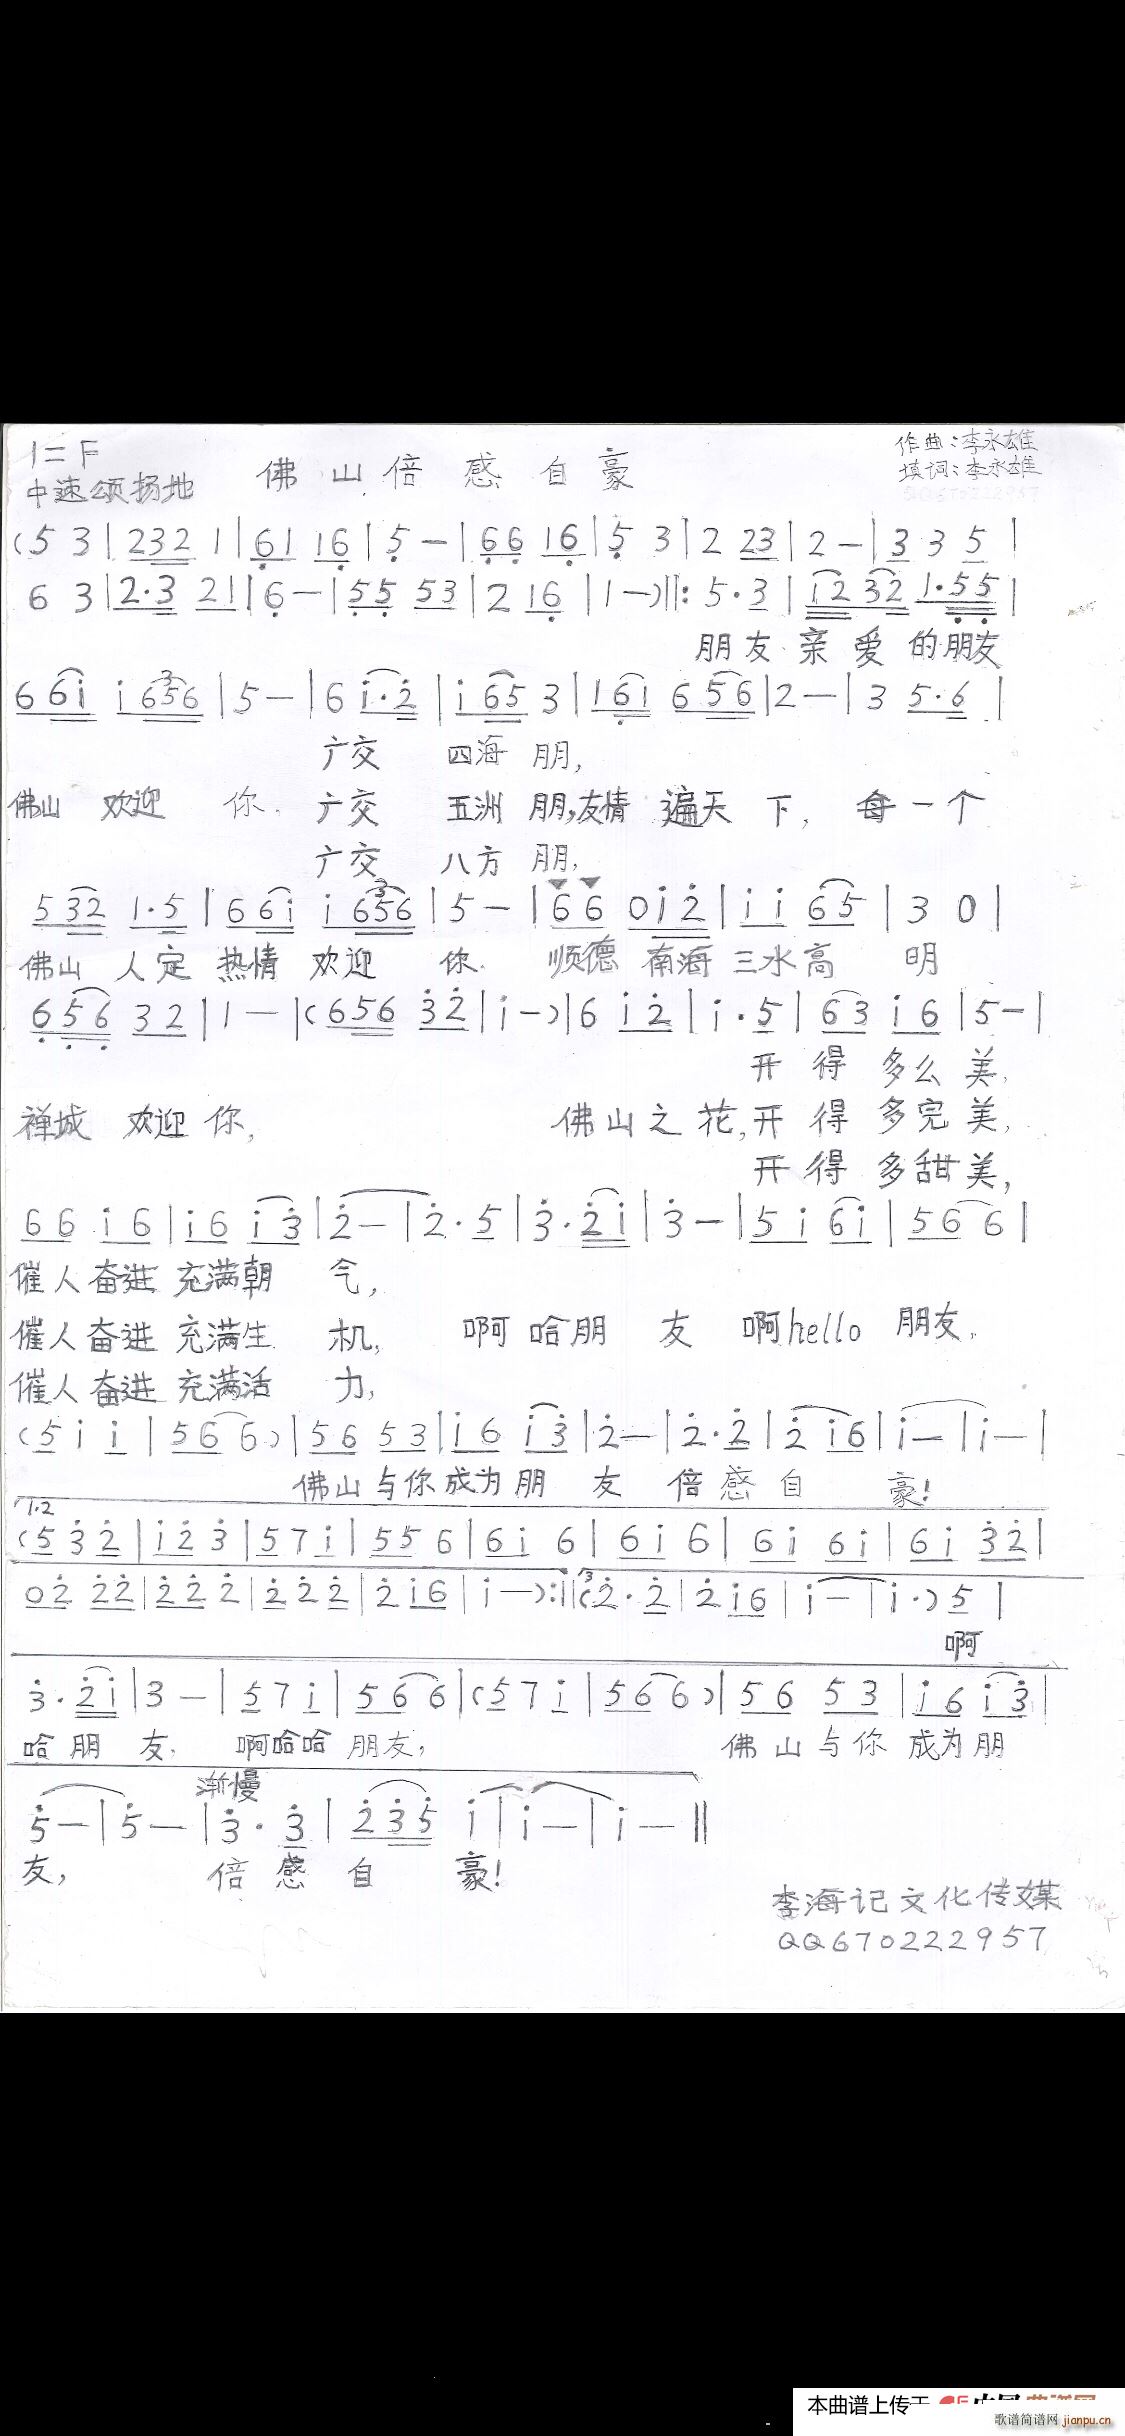 1=F
佛山倍感自豪
作曲:李永雄
中速颂扬地
填词:李永雄
QQ670222957
(5 3 | 232 1 | 61 16 | 5 — | 66 16 | 5 3 | 2 23 | 2 — | 3 3 5 |
6 3 | 2·3 21 | 6 — | 55 53 | 2 16 | 1 —) ‖: 5·3 | i2 32 1·55 |
朋友 亲爱的朋友
6 6i i 656 | 5 — | 6 i·2 | i 65 3 | 161 6 56 | 2 — | 3 5·6 |
广交 四海 朋,
佛山 欢迎 你. 广交 五洲 朋,友情 遍天 下, 每一个
广交 八方 朋,
532 1·5 | 6 6i i 656 | 5 — | 66 0i2 | ii 65 | 3 0 |
佛山 人定 热情 欢迎 你. 顺德 南海 三水高 明
656 32 | 1 — | (656 32 | i —) | 6 i2 | i·5 | 63 i6 | 5 — |
开 得 多么 美,
禅城 欢迎 你, 佛山之花,开 得 多完 美,
开 得 多甜 美,
66 i6 | i6 i3 | 2 — | 2·5 | 3·2i | 3 — | 5i 6i | 56 6 |
催人奋进 充满朝 气,
催人奋进 充满生 机, 啊哈朋 友 啊hello 朋友,
催人奋进 充满活 力,
(5 i i | 56 6) | 56 53 | i6 i3 | 2 — | 2·2 | 2 i6 | i — | i — |
佛山与你成为朋 友 倍感自 豪!
1·2
(5 3 2 | i2 3 | 57 i | 55 6 | 6i 6 | 6i 6 | 6i 6i | 6i 32 |
02 22 | 22 2 | 2 2 2 | 2 i6 | i —) :‖ 3 (2·2 | 2 i6 | i — | i·) 5 |
啊
3·2i | 3 — | 57 i | 56 6 | (57 i | 56 6) | 56 53 | i6 i3 |
哈朋 友, 啊哈哈 朋友, 佛山与你 成为朋
渐慢
5 — | 5 — | 3·3 | 235 i | i — | i — ‖
友, 倍感 自 豪!
李海记文化传媒
QQ670222957
本曲谱上传于
歌谱简谱网 jianpu.cn